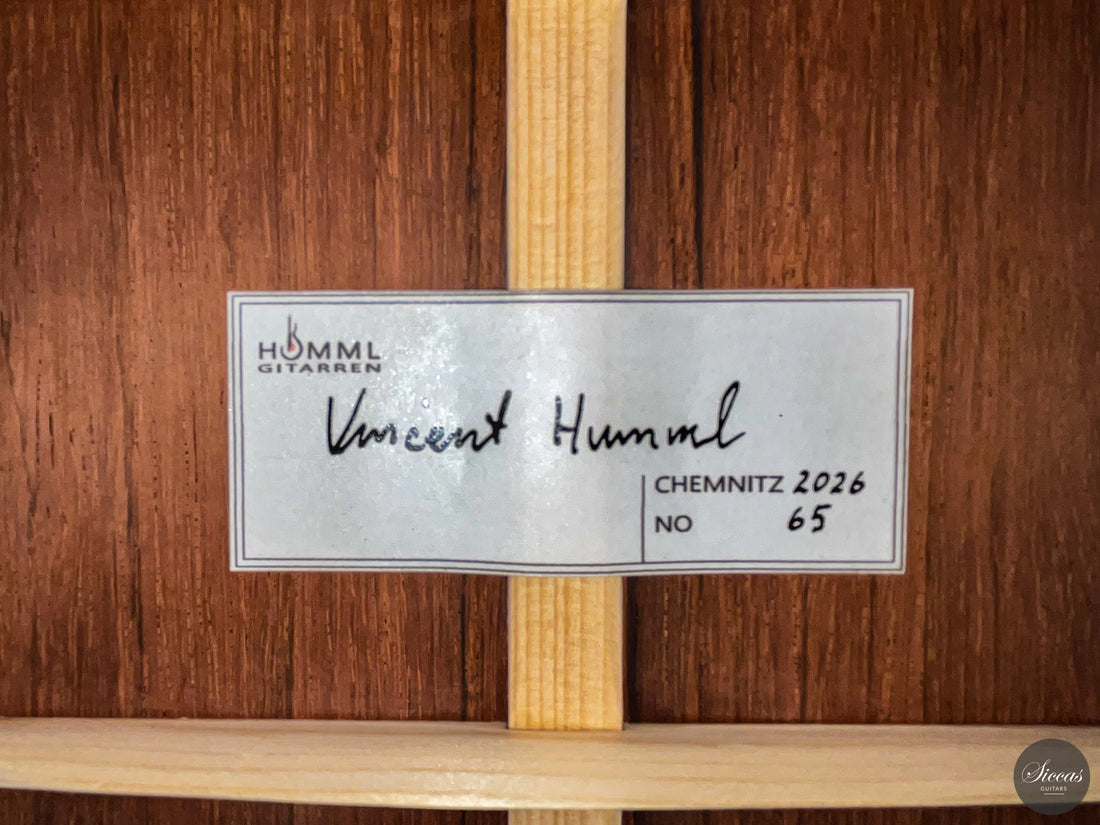 HUMML
GITARREN
Vincent Humml
CHEMNITZ 2026
NO 65
Siccas
GUITARS